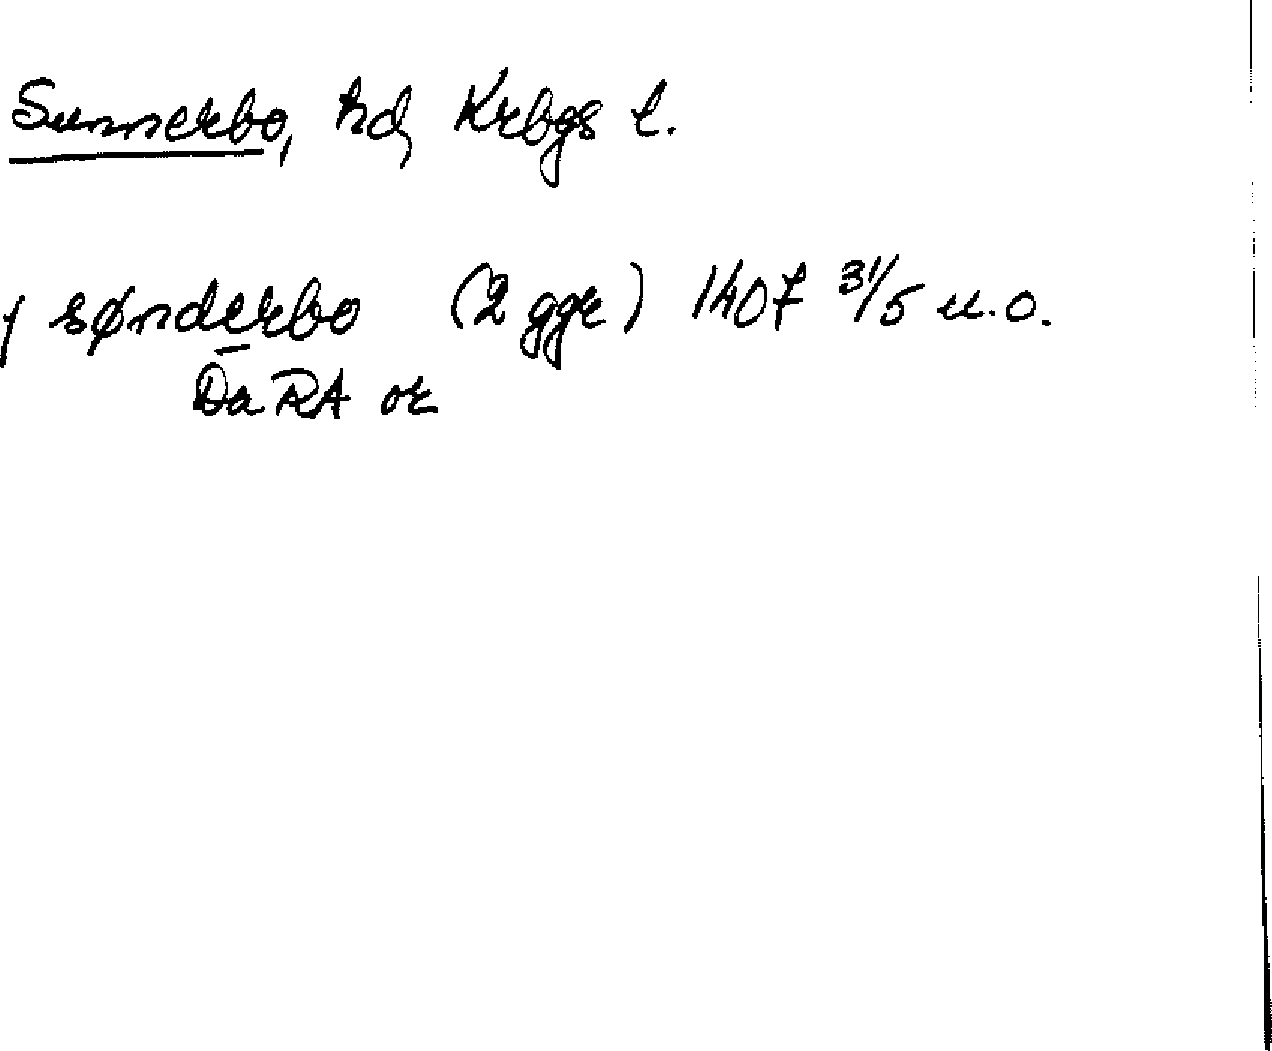 Sunnerbo, hd, Krbgs l.
j sønderbo (2 ggr) 1407 31/5 u.o.
Da RA or